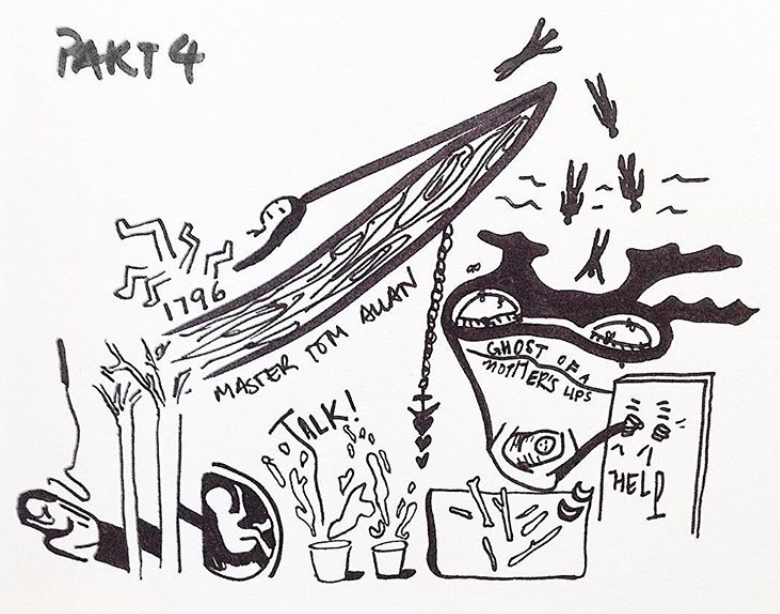 PART 4
1796
MASTER TOM ALLAN
TALK!
GHOST OF A
MOTHER'S LIPS
HELP